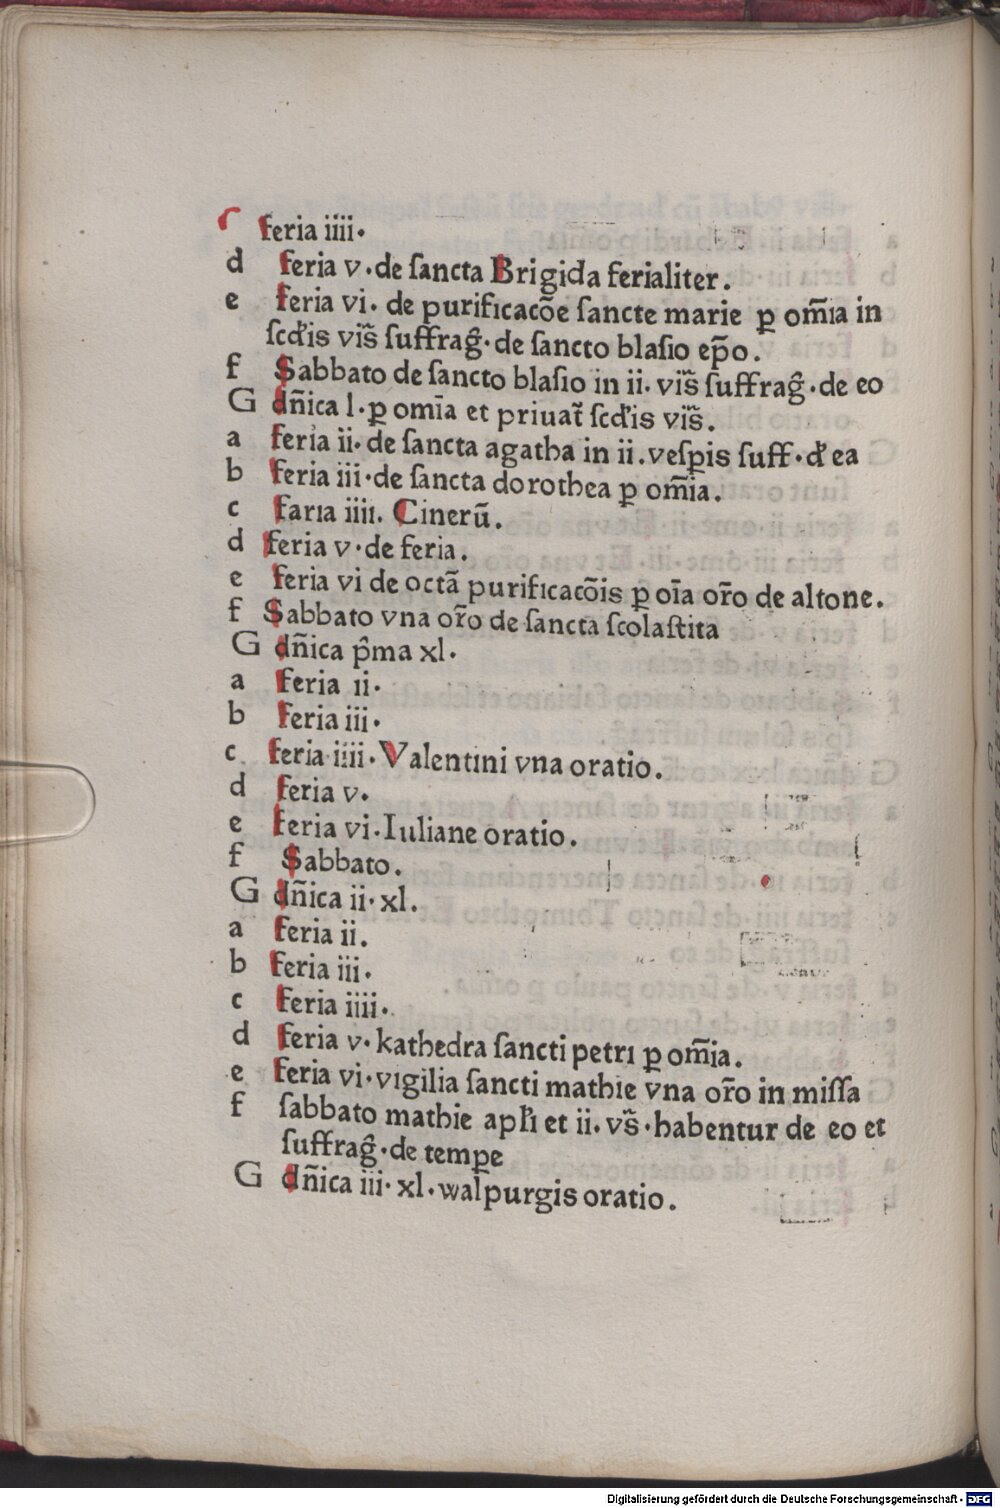 c feria iiii.
d feria v. de ſancta Brigida ferialiter.
e feria vi. de purificacõe ſancte marie ꝑ om̃ia in
ſcd̓is viſ̃ ſuffrag̃. de ſancto blaſio ep̃o.
f Sabbato de ſancto blaſio in ii. viſ̃ ſuffrag̃. de eo
G dñica l. ꝑ omīa et priuat̃ ſcd̓is viſ̃.
a feria ii. de ſancta agatha in ii. veſꝑis ſuff. d̓ ea
b feria iii. de ſancta dorothea ꝑ om̃ia.
c faria iiii. Cinerū.
d feria v. de feria.
e feria vi de octã purificacõis ꝑ oīa or̃o de altone.
f Sabbato vna or̃o de ſancta ſcolaſtita
G dñica p̃ma xl.
a feria ii.
b feria iii.
c feria iiii. Valentini vna oratio.
d feria v.
e feria vi. Iuliane oratio.
f Sabbato.
G dñica ii. xl.
a feria ii.
b feria iii.
c feria iiii.
d feria v. kathedra ſancti petri ꝑ om̃ia.
e feria vi. vigilia ſancti mathie vna or̃o in miſſa
f ſabbato mathie apl̓i et ii. vſ̃. habentur de eo et
ſuffrag̃. de temꝑe
G dñica iii. xl. walpurgis oratio.
Digitalisierung gefördert durch die Deutsche Forschungsgemeinschaft - DFG